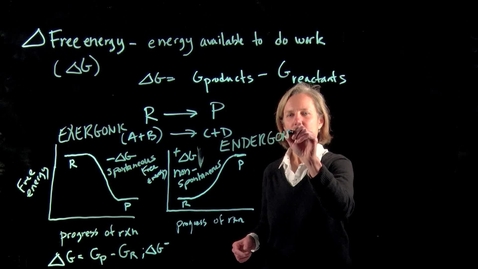 Δ Free energy - energy available to do work
(ΔG)
ΔG = Gproducts - Greactants
R → P
EXERGONIC (A+B) → C+D
ENDERGON
Free energy
R
P
-ΔG
spontaneous
progress of rxn
Free energy
+ΔG
non-
spontaneous
R
P
progress of rxn
ΔG = Gp - GR ; ΔG-